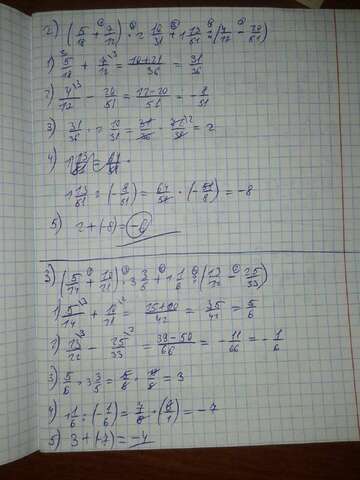 2) (5/18 + 7/12) · 2 10/31 + 1 13/51 : (4/17 - 20/51)
1) 5/18 + 7/12 = 10+21/36 = 31/36
2) 4/17 - 20/51 = 12-20/51 = -8/51
3) 31/36 · 2 10/31 = 31/36 · 72/31 = 2
4) 1 13/51 = 64/51 .
1 13/51 : (-8/51) = 64/51 · (-51/8) = -8
5) 2+(-8)= -6
3) (5/14 + 10/21) · 3 3/5 + 1 1/6 : (13/22 - 25/33)
1) 5/14 + 10/21 = 15+20/42 = 35/42 = 5/6
2) 13/22 - 25/33 = 39-50/66 = -11/66 = -1/6
3) 5/6 · 3 3/5 = 5/6 · 18/5 = 3
4) 1 1/6 : (-1/6) = 7/6 · (6/1) = -7
5) 3+(-7)= -4